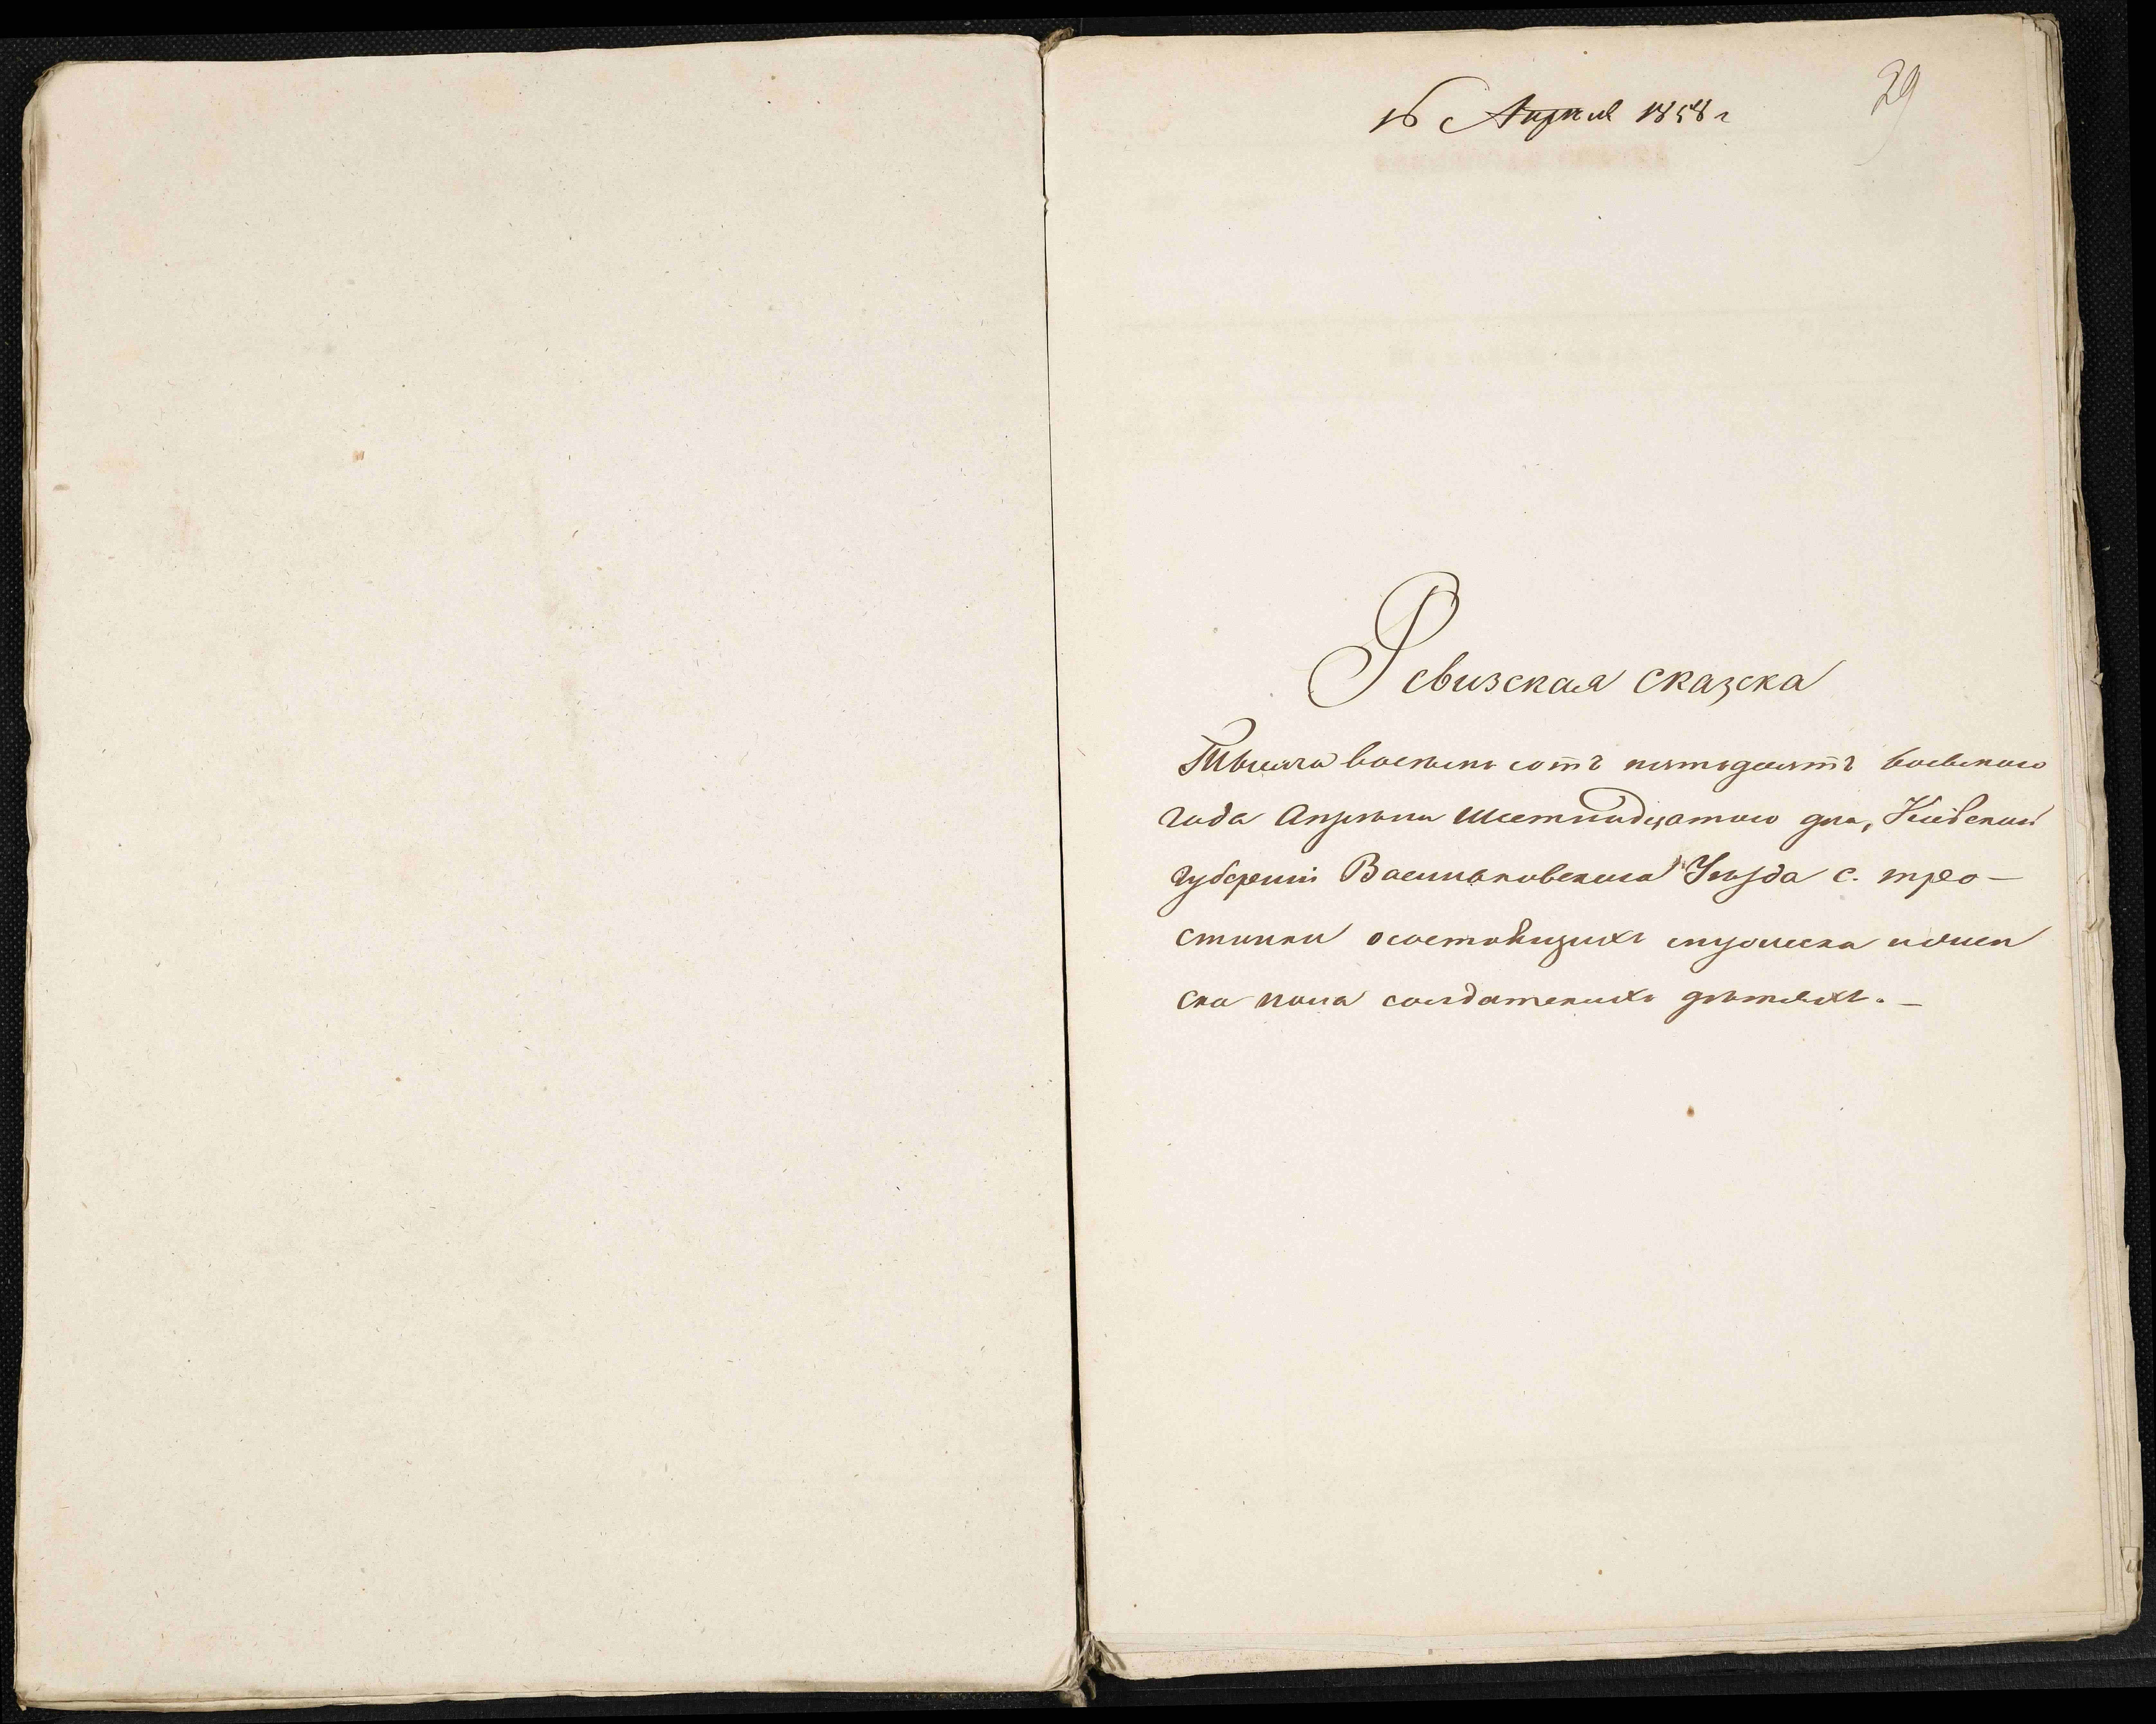 16 Апреля 1858 г
29
Ревизская сказска
Тысяча восемь сотъ пятьдесятъ восьмого
года Апреля Шестнадцатого дня, Кіевской
губерніи Васильковского Уезда с. тро-
стинки осостоящихъ мужеска иженс
ска пола солдатскихъ дѣтяхъ. –